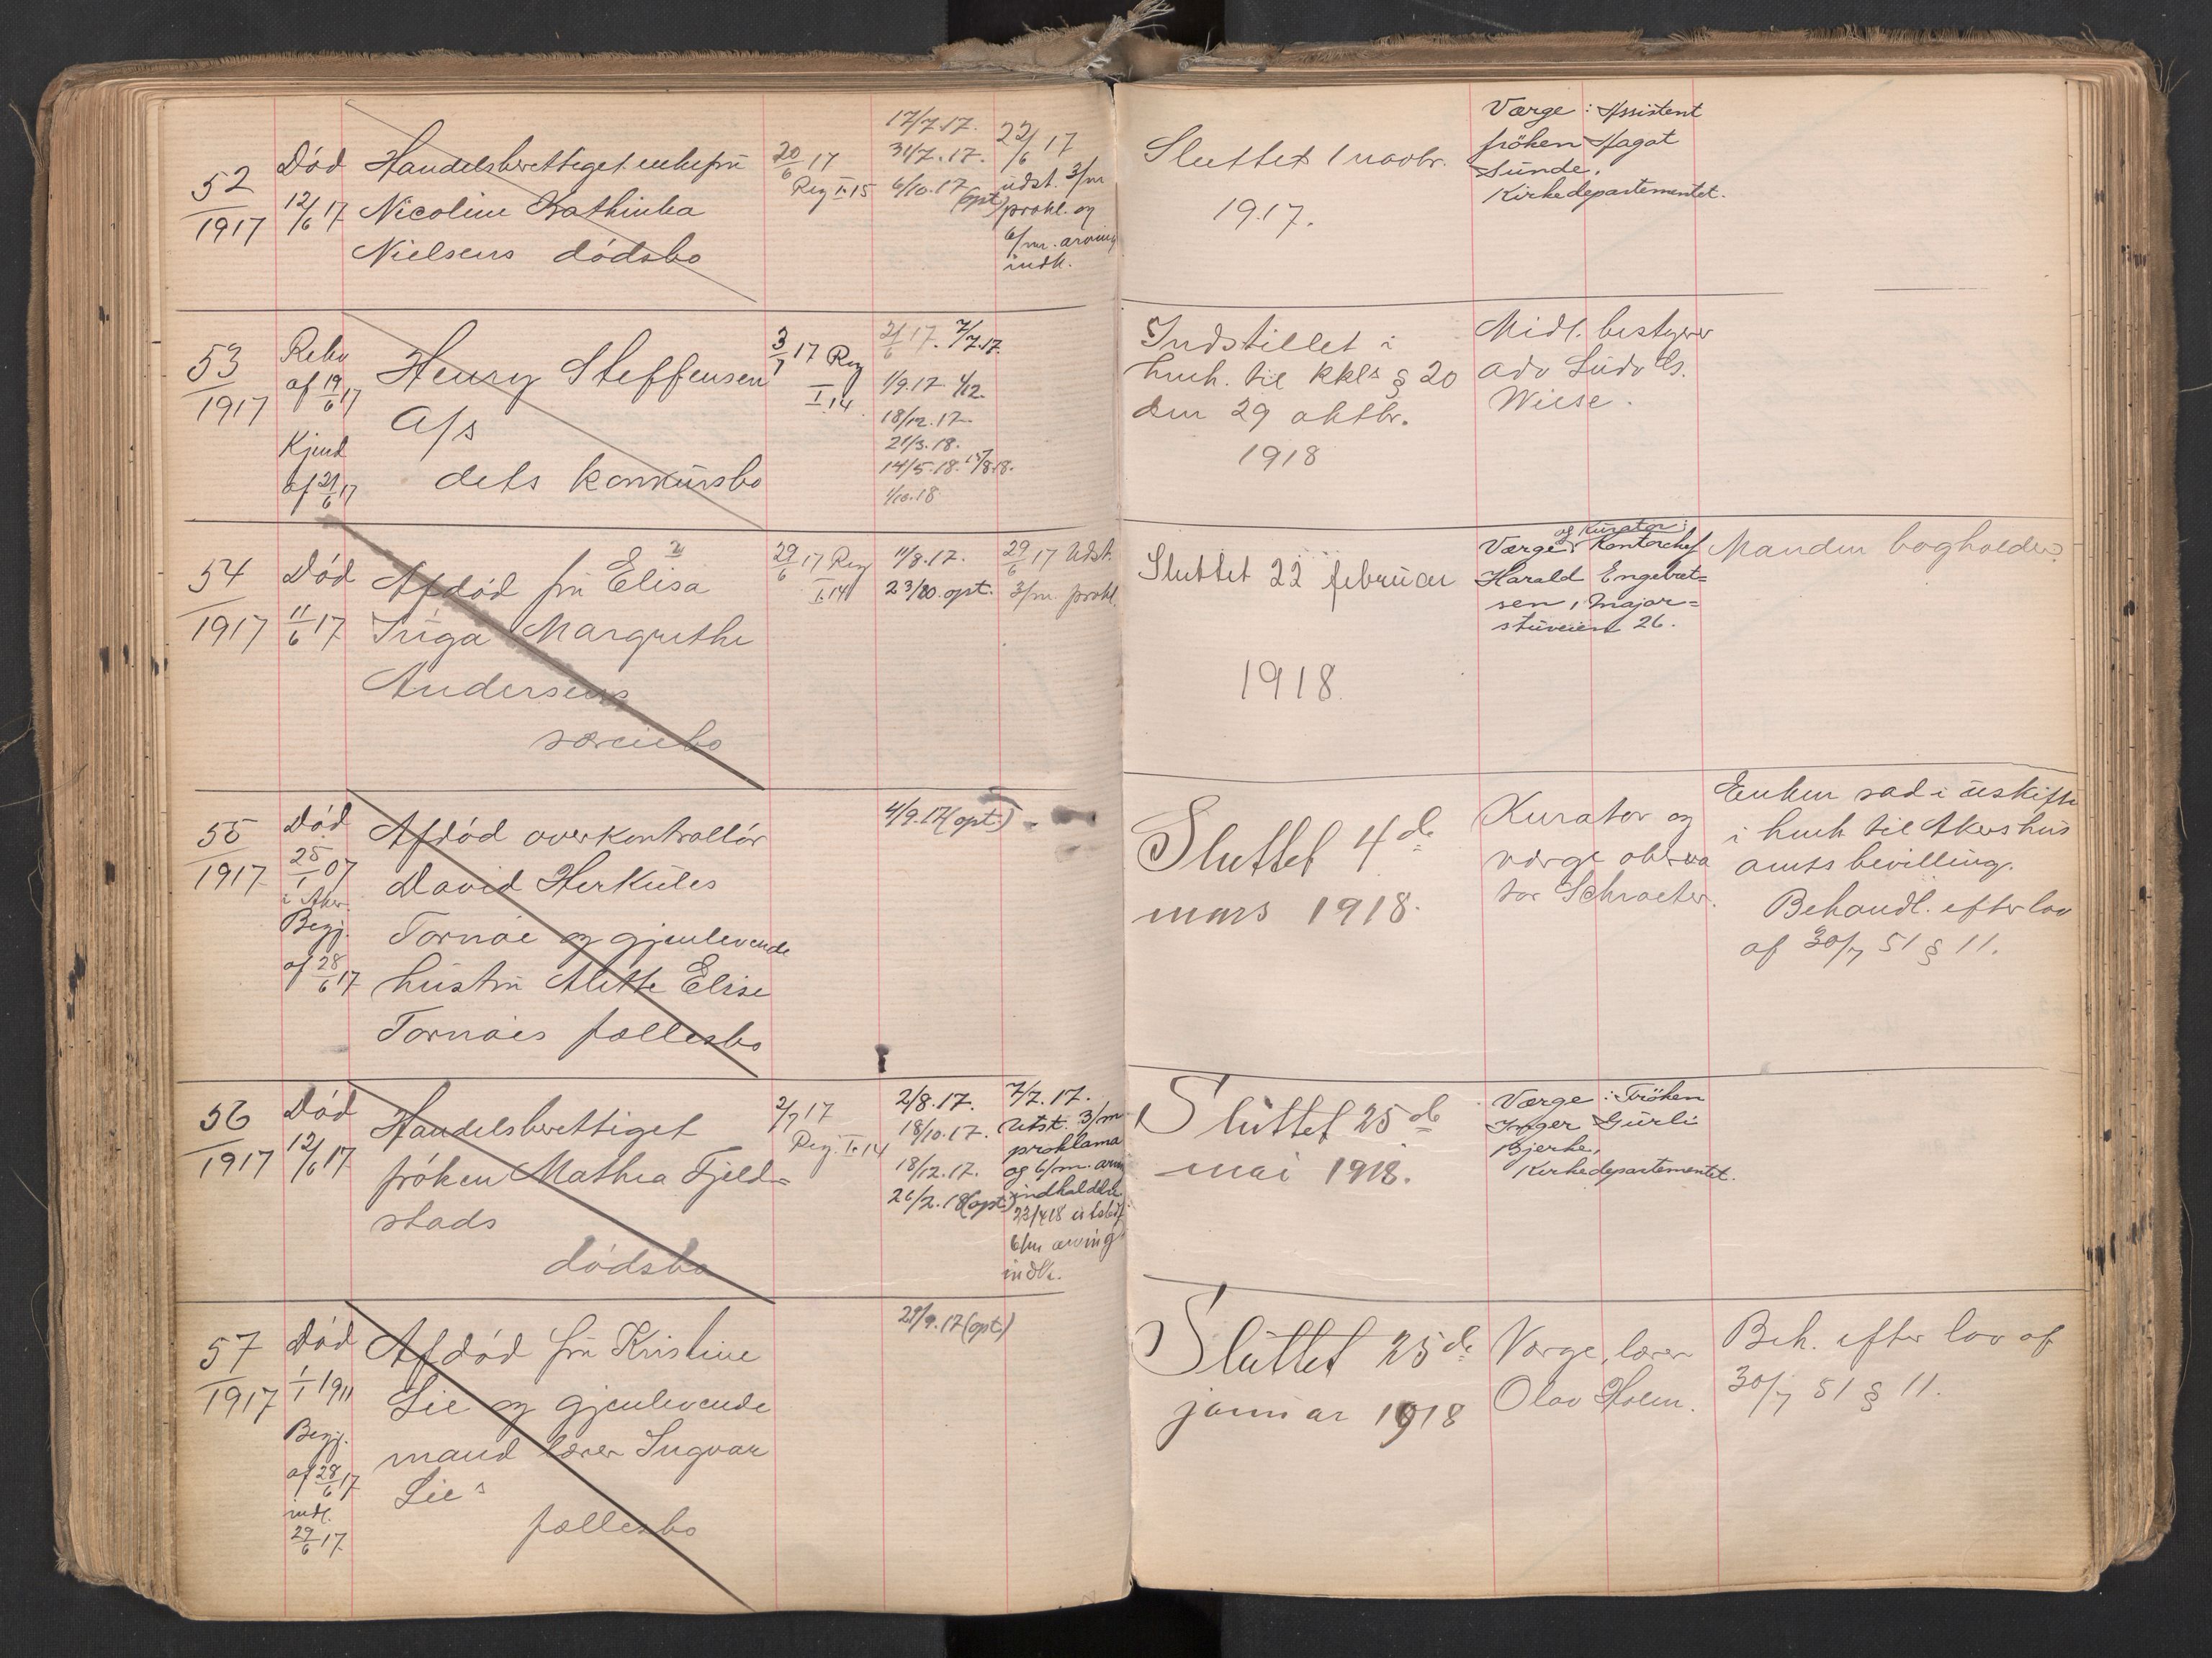 52
1917
Død
12/6 17
Handelsberettiget enkefru
Nicoline Kathinka
Nielsens dødsbo
20/6 17
Reg I.15
17/7.17.
31/7.17.
6/10.17 (opt)
22/6 17
udst. 3/m
prokl. og
6/m. arving
indk.
Sluttet 1 novbr.
1917.
Værge: Assistent
frøken Aagot
Sunde,
Kirkedepartementet.
53
1917
Reky
af 19/6 17
Kjend
af 21/6 17
Henry Steffensen
A/s
dets konkursbo
3/7 17 Reg
I.14
21/6 17. 7/7.17.
1/9.17 4/12.
18/12.17
21/3.18.
14/5.18. 15/8.18.
1/10.18
Indstillet i
henh. til kkls § 20
den 29 oktbr.
1918
Midl. bestyrer
adv Ludv Cs.
Wiese.
54
1917
Død
11/6 17
Afdød fru Elisa
Inga Margrethe
Andersens
særeiebo
29/6 17 Reg
I.14
11/8.17.
23/10. opt.
29/6 17 Udst.
3/m. prokl.
Sluttet 22 februar
1918.
og Kurator:
Værge: Kontorchef
Harald Engebret=
sen, Major=
stuveien 26.
Manden bogholder
55
1917
Død
25/1 07
i Aker.
Begj.
af 28/6 17
Afdød overkontrollør
David Herkules
Tornøe og gjenlevende
hustru Alette Elise
Tornøes fællesbo
4/9.17 (opt.)
Sluttet 4de
mars 1918.
Kurator og
værge observa
tor Schroeter.
Enken sad i uskifte
i henh til Akershus
amts bevilling.
Behandl. efter lov
af 30/7 51 § 11.
56
1917
Død
12/6 17
Handelsberettiget
frøken Mathea Fjeld=
stads
dødsbo
2/7 17
Reg. I.14
2/8.17.
18/10.17.
18/12.17.
26/2.18 (opt.)
7/7.17.
Utst. 3/m
proklama
og 6/m. arving
indkaldelse
23/4 18 utstedt
6/m arving
indk.
Sluttet 25de
mai 1918.
Værge: Frøken
Inger Gurli
Bjerke,
Kirkedepartementet.
57
1917
Død
1/1 1911
Begj.
af 28/6 17
indl.
29/6 17
Afdød fru Kristine
Lie og gjenlevende
mand lærer Ingvar
Lie's
fællesbo
29/9.17 (opt.)
Sluttet 25de
januar 1918
Værge, lærer
Olav Holm.
Beh. efter lov af
30/7 51 § 11.